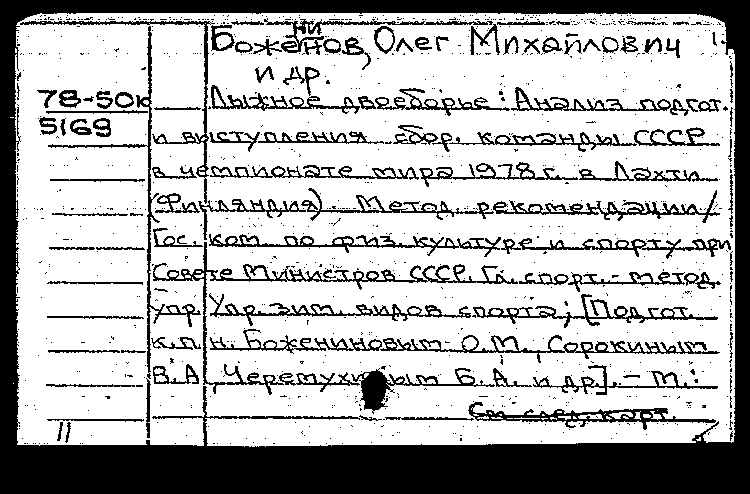 Боженинов, Олег Михайлович 1-
и др.
78-50к Лыжное двоеборье: Анализ подгот.
5169 и выступления сбор. команды СССР
в чемпионате мира 1978 г. в Лахти
(Финляндия). Метод. рекомендации/
Гос. ком. по физ. культуре и спорту при
Совете Министров СССР. Гл. спорт.-метод.
упр. Упр. зим. видов спорта; [Подгот.
к.п.н. Божениновым О.М., Сорокиным
В.А., Черемухиным Б.А. и др.]. - М.:
См. след. карт.
11